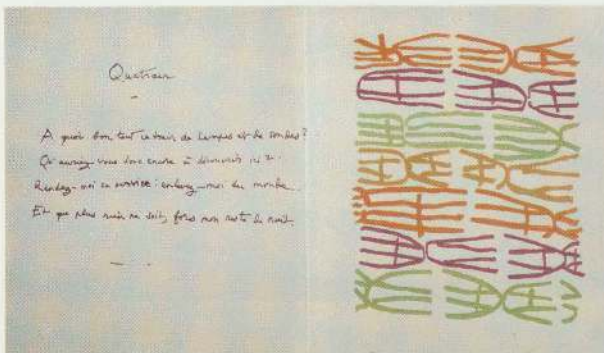 Quatrain
A quoi bon tout ce train de lampes et de sondes?
Qu'auriez-vous donc encore à découvrir ici?
Rendez-moi sa : enlevez-moi du monde.
Et que plus rien ne soit, fors mon reste de nuit.